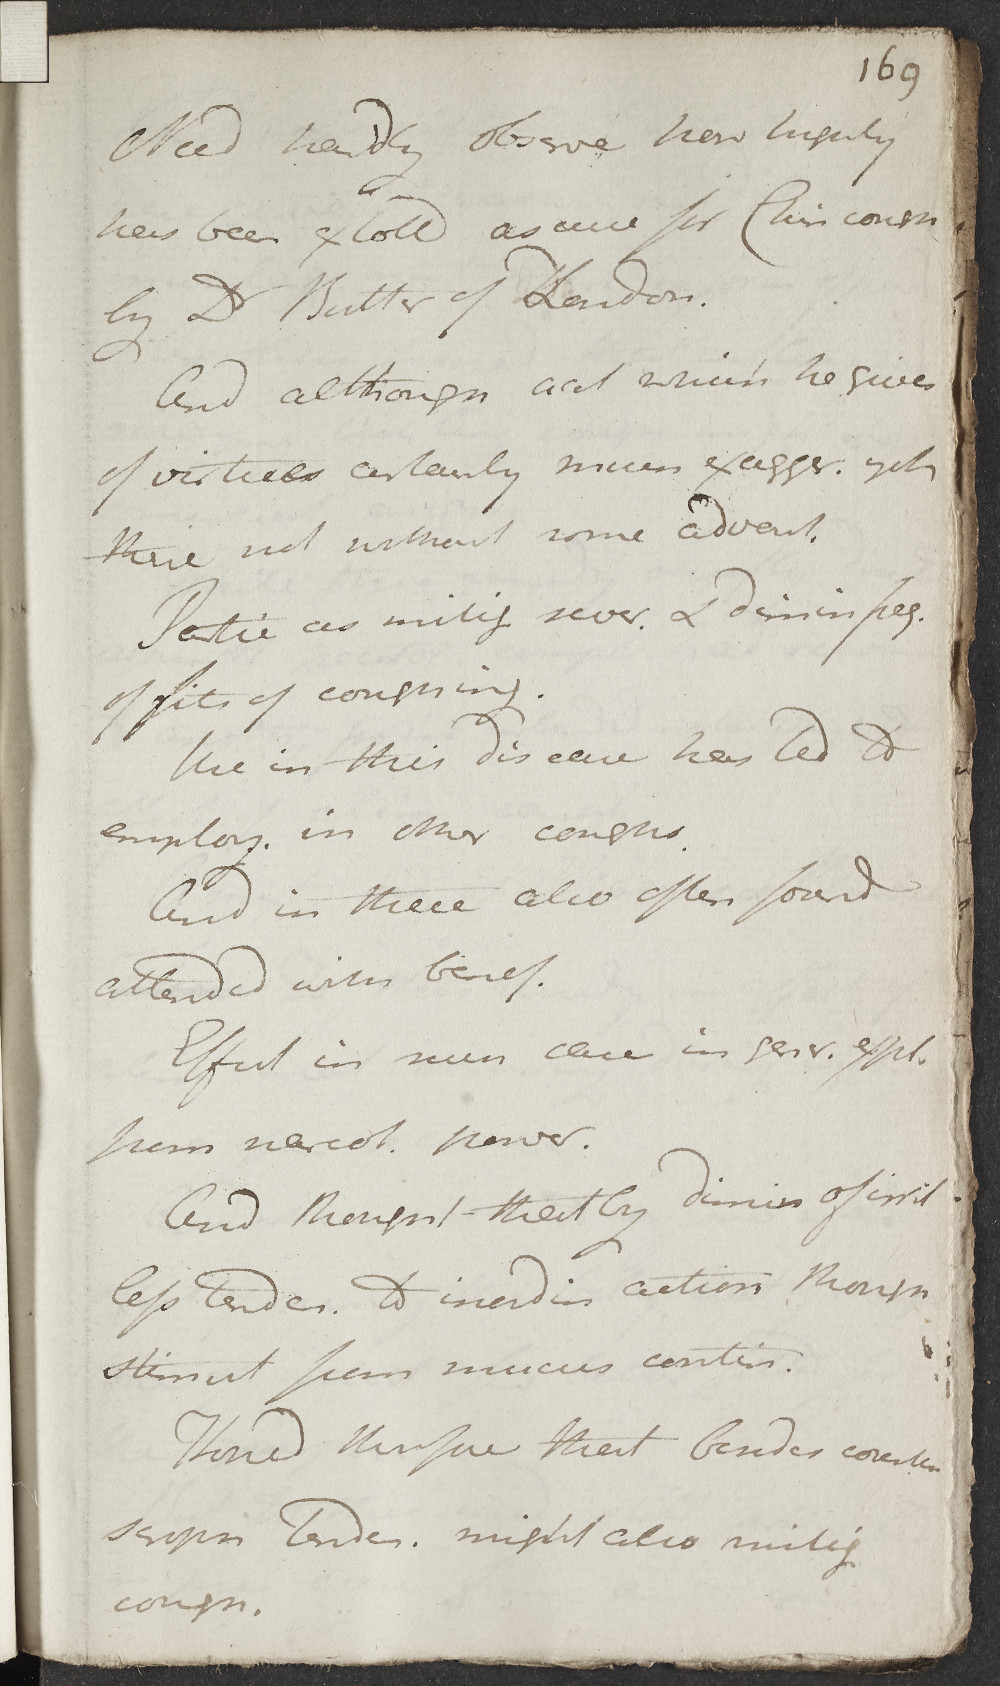 169
Need hardly observe how highly
has been extolld as cure for Chincough
by Dr Butter of London.
And although acct which he gives
of virtues certainly much exagger. yet
there not without some advant.
Partic as mitig sever. & dimin freq.
of fits of coughing.
Use in this disease has led to
employ. in other coughs.
And in these also often found
attended with benef.
Effect in such case in gener. expl.
from narcot. power.
And thought that by dimin of irrit.
less tenden. to inordin action though
stimul from mucus contin.
Hoped therefore that besides
scroph tenden. might also mitig
cough.